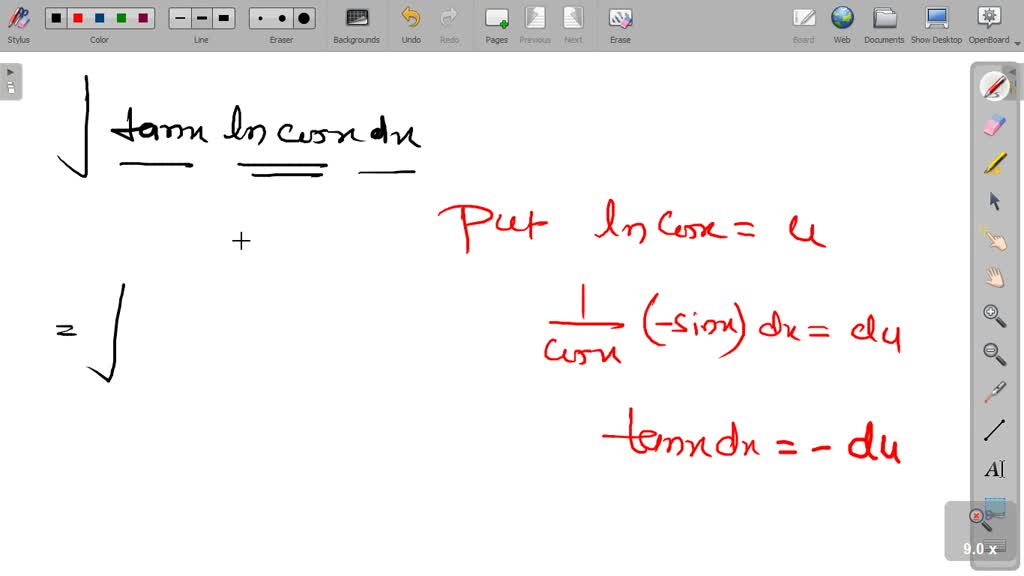 Stylus Color Line Eraser Backgrounds Undo Redo Pages Previous Next Erase Board Web Documents Show Desktop OpenBoard
∫ tanx ln cosx dx
Put ln cosx = u
= ∫
1/cosx (-sinx) dx = du
tanx dx = - du
9.0 x